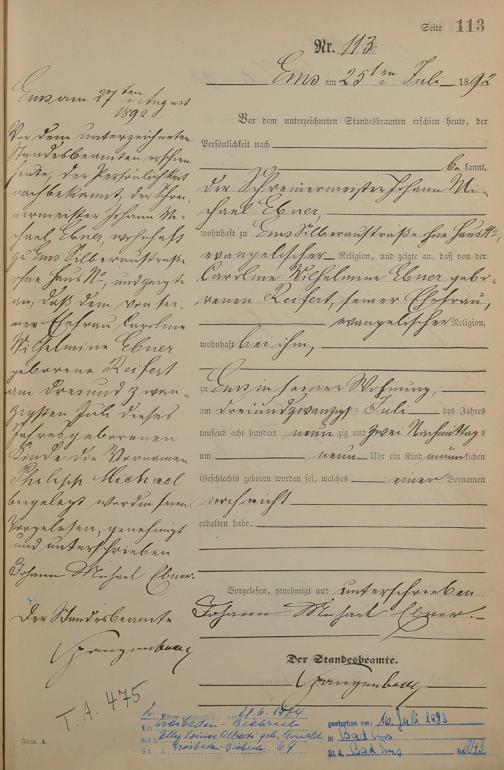 Seite 113
Nr. 113
Ems am 25ten Juli 1892
Vor dem unterzeichneten Standesbeamten erschien heute, der
Persönlichkeit nach
bekannt,
der Schreinermeister Johann Mi-
chael Ebner,
wohnhaft zu Ems Silberaustraße ohne Haus No,
evangelischer Religion, und zeigte an, daß von der
Caroline Wilhelmine Ebner gebo-
renen Reifert, seiner Ehefrau,
evangelischer Religion,
wohnhaft bei ihm,
zu Ems in seiner Wohnung,
am dreiundzwanzigsten Juli des Jahres
tausend acht hundert neunzig und zwei Nachmittags
um neun Uhr ein Kind männlichen
Geschlechts geboren worden sei, welches einen Vornamen
noch nicht
erhalten habe.
Vorgelesen, genehmigt und unterschrieben
Johann Michael Ebner.
Der Standesbeamte.
Ems am 27ten August
1892
Vor dem unterzeichneten
Standesbeamten erschien
heute, der Persönlichkeit
nach bekannt, der Schrei-
nermeister Johann Mi-
chael Ebner, wohnhaft
zu Ems Silberaustraße
ohne Haus No, und zeigte
an, daß dem von sei-
ner Ehefrau Caroline
Wilhelmine Ebner
geborene Reifert
am dreiundzwan-
zigsten Juli dieses
Jahres geborenen
Kinde die Vornamen
Philipp Michael
beigelegt worden seien.
Vorgelesen, genehmigt
und unterschrieben
Johann Michael Ebner.
Der Standesbeamte
T. A. 475
in Wiesbaden-Biebrich
mit Elly Louise Alberti geb.
St. A. Wiesbaden-Biebrich 69
gestorben am: 16. Juli
in Bad Ems
St. A. Bad Ems No
Form. A.